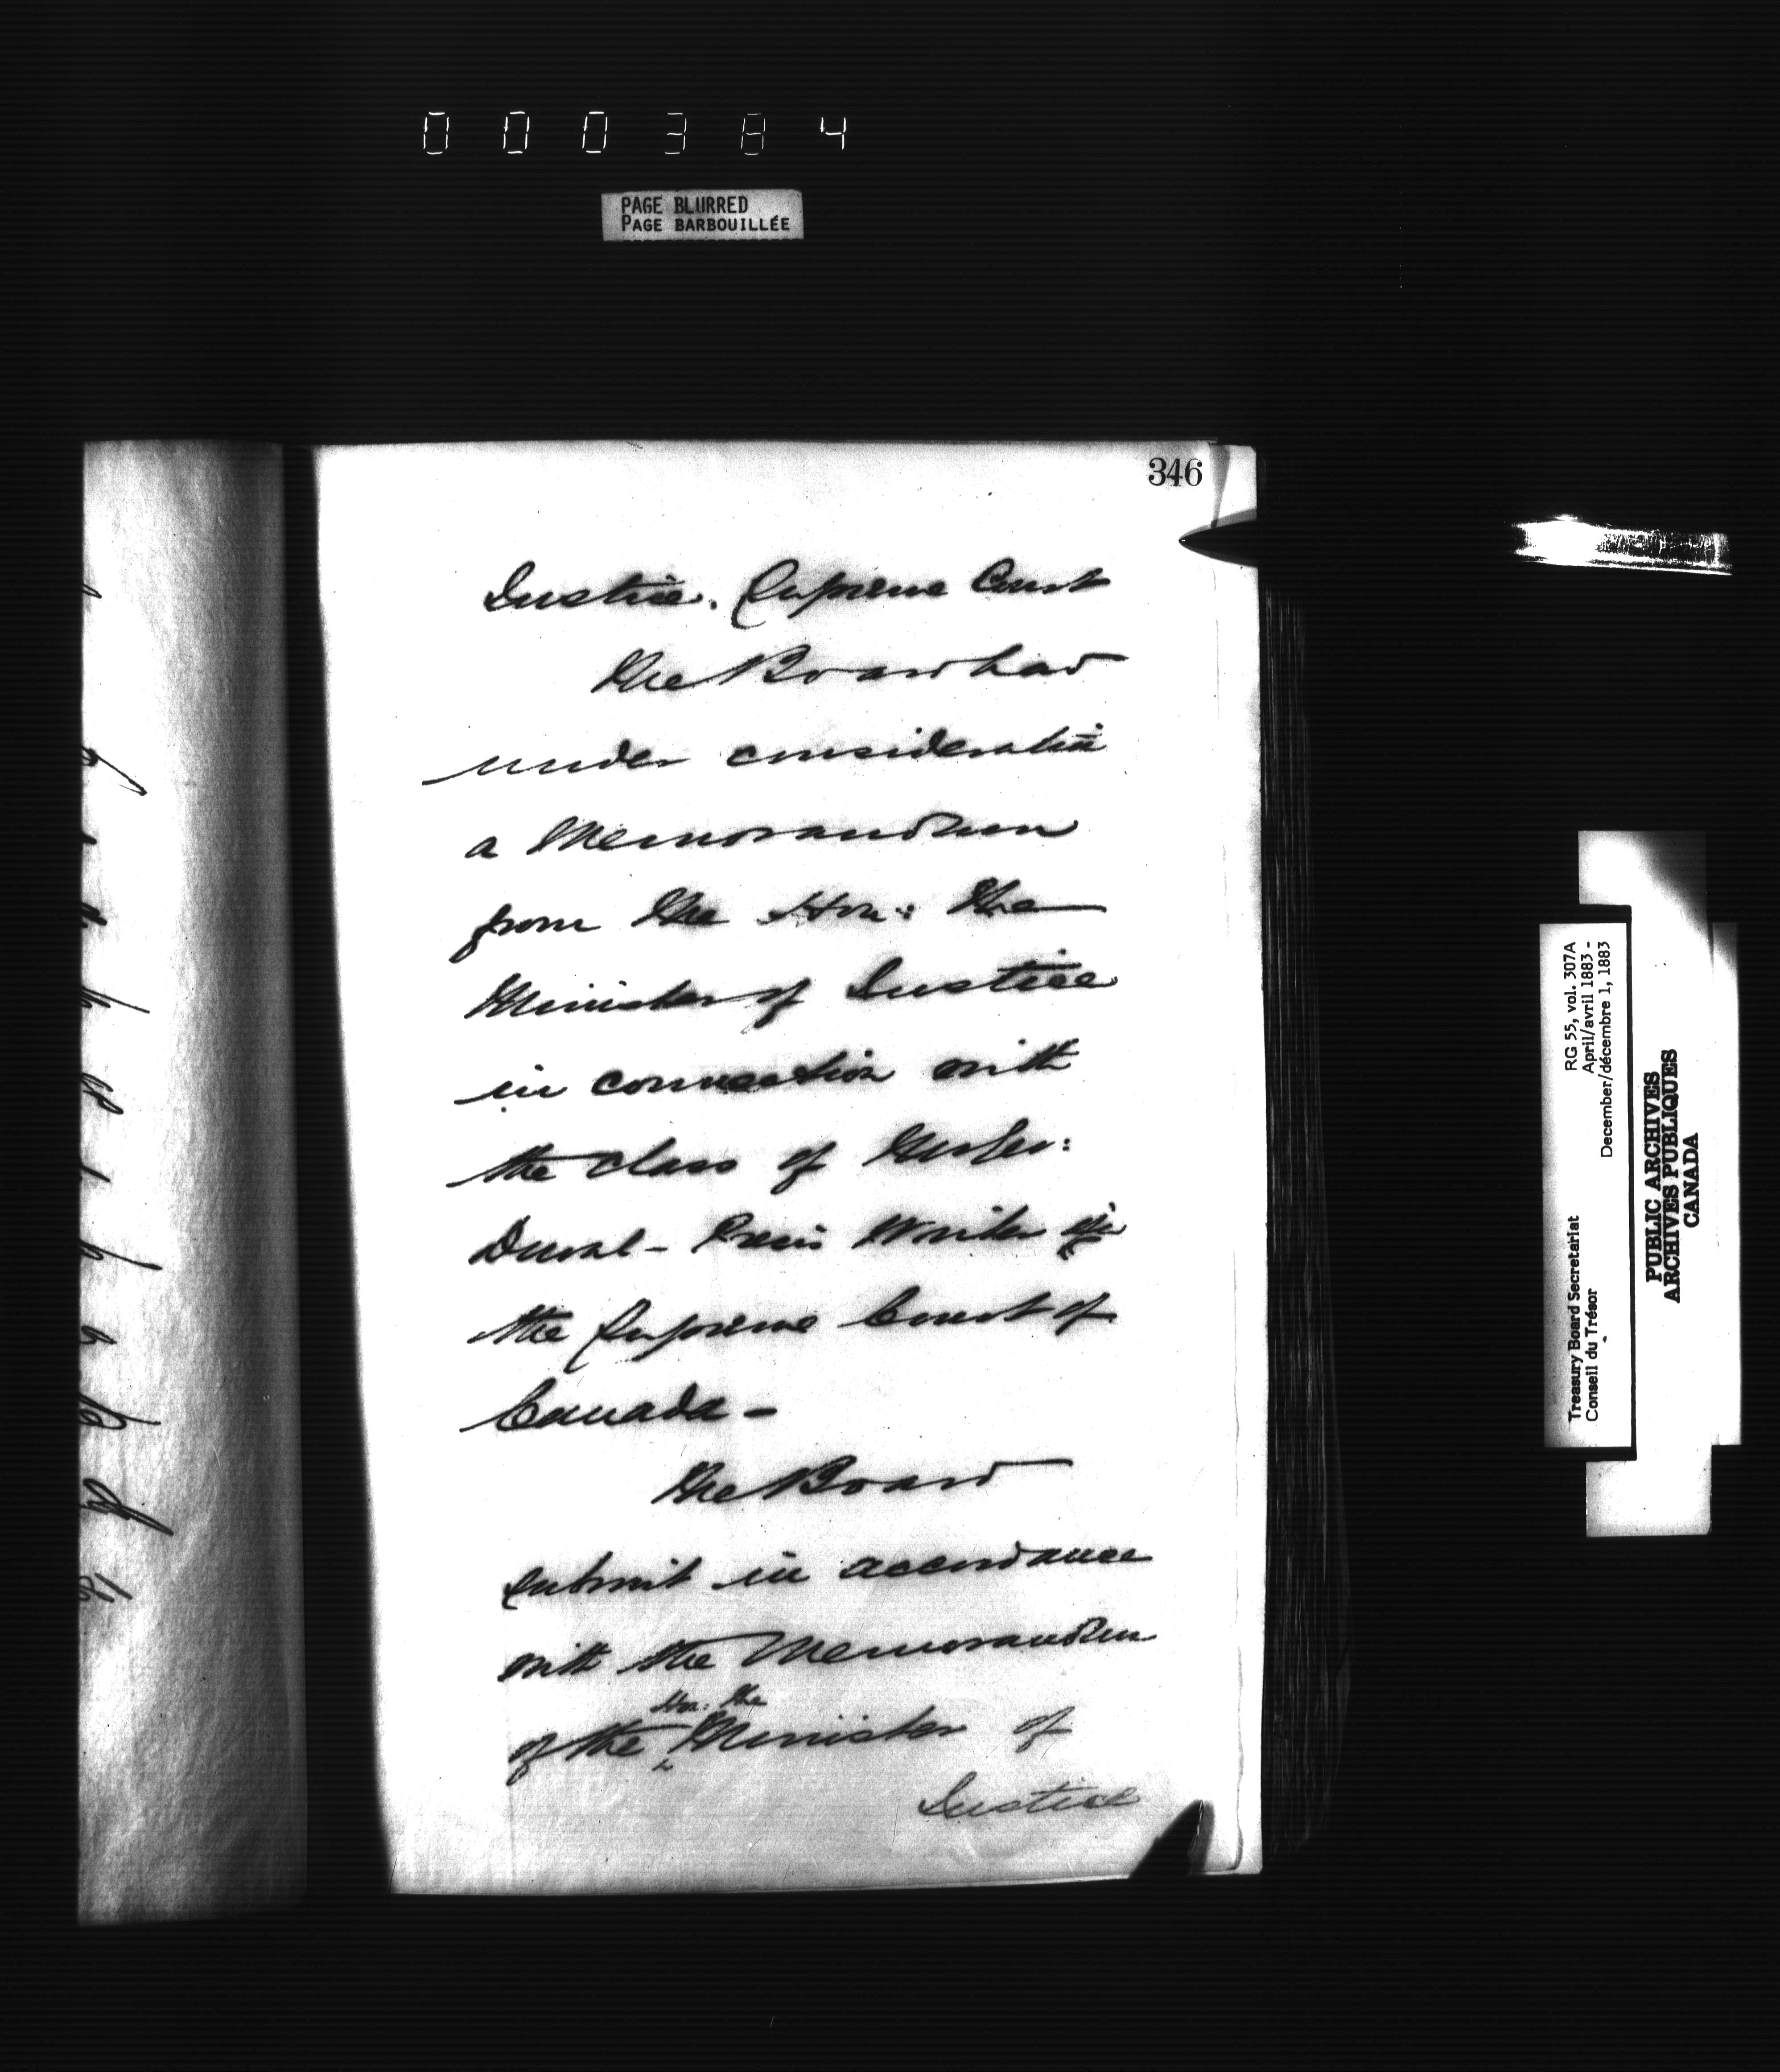 000384
PAGE BLURRED
PAGE BARBOUILLÉE
346
Justice. Supreme Court
The Board had
under consideration
a Memorandum
from the Hon: the
Minister of Justice
in connection with
the class of
Duval - Precis Writer in
the Supreme Court of
Canada -
The Board
submit in accordance
with the Memorandum
of the Hon: the Minister of
Justice
Treasury Board Secretariat RG 55, vol. 307A
Conseil du Trésor April/avril 1883 -
December/décembre 1, 1883
PUBLIC ARCHIVES
ARCHIVES PUBLIQUES
CANADA